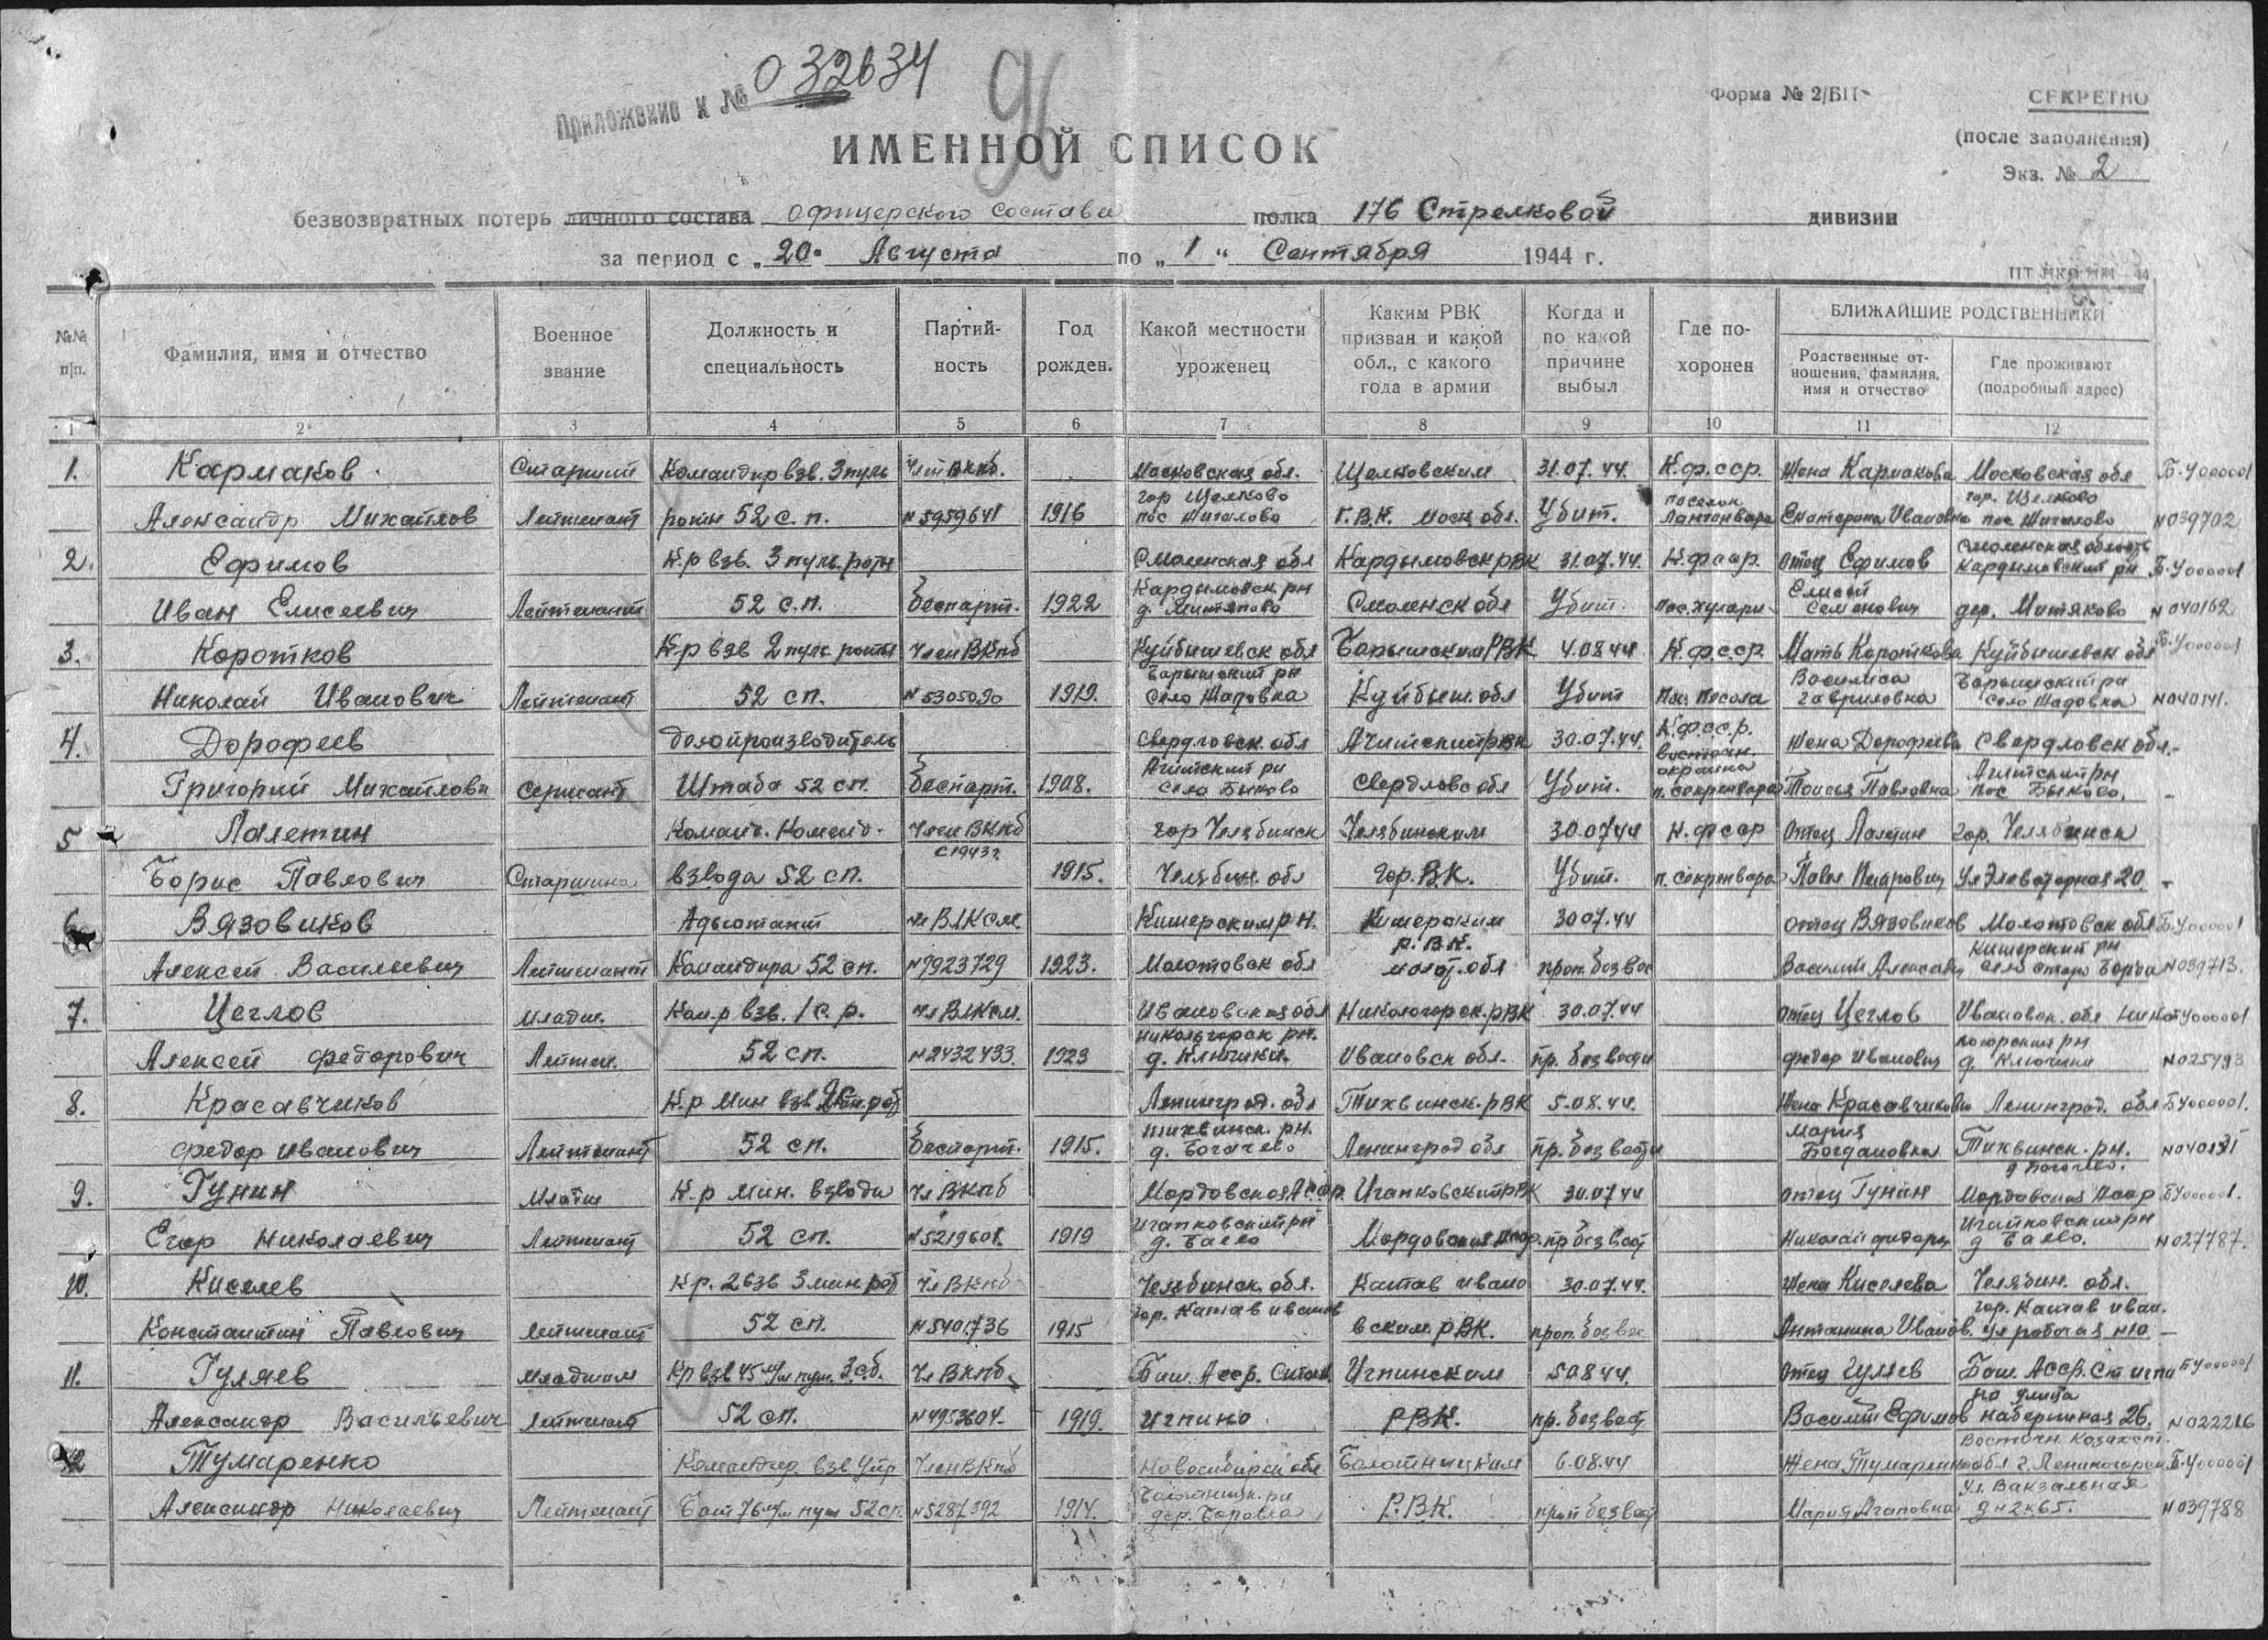 Приложение к № 032634
96
Форма № 2/БП
СЕКРЕТНО
(после заполнения)
Экз. № 2
ИМЕННОЙ СПИСОК
безвозвратных потерь личного состава офицерского состава полка 176 Стрелковой дивизии
за период с „20" Августа по „1" Сентября 1944 г.
№№ п|п. Фамилия, имя и отчество Военное звание Должность и специальность Партийность Год рожден. Какой местности уроженец Каким РВК призван и какой обл., с какого года в армии Когда и по какой причине выбыл Где похоронен БЛИЖАЙШИЕ РОДСТВЕННИКИ
Родственные отношения, фамилия, имя и отчество Где проживают (подробный адрес)
1 2 3 4 5 6 7 8 9 10 11 12
1. Кармаков Старший Командир взв. 3 пуль Член ВКпб. Московская обл. Щелковским 31.07.44. К.ф.сср. Жена Кармакова Московская обл Б.У000001
гор Щелково поселок гор. Щелково
Александр Михайлов Лейтенант роты 52 с.п. №5959641 1916 пос Жигалово Г.В.К. Моск обл. Убит. Екатерина Ивановна пос Жигалово №039702
2. Ефимов К.р взв. 3 пуль. роты Смоленская обл Кардымовск РВК 31.07.44. К.ф сср. Отец Ефимов Смоленская область
Кардымовский рн Б.У000001
Кардымовск рн Елисей
Иван Елисеевич Лейтенант 52 с.п. беспарт. 1922 д. Митяково Смоленск обл Убит. Семенович дер. Митяково №040162
3. Коротков К.р взв 2 пуль роты Член ВКпб Куйбышевск обл Барышским РВК 4.08.44 К.ф.с.ср. Мать Короткова Куйбышевск обл Б.У000001
Барышский рн Василиса Барышский рн
Николай Иванович Лейтенант 52 сп. №5305090 1919. Убит Гавриловна №040141.
4. Дорофеев делопроизводитель Свердловск. обл Ачитский РВК 30.07.44. К.ф.сс.р. Жена Дорофеева Свердловск обл.-
восточн.
Ачитский рн окраина Ачитский рн
Григорий Михайлови Сержант Штаба 52 сп. беспарт. 1908. Село Быково Свердловс обл Убит. Таисья Павловна пос Быково. -
5 Лалетин Команд. Коменд. Член ВКпб гор Челябинск Челябинским 30.07.44 К.ф сср Отец Лалетин гор. Челябинск
с 1943 г.
Борис Павлович Старшина взвода 52 сп. 1915. Челябин. обл Гор. В.К. Убит. Павел Петрович -
6 Вязовиков Адъютант чл ВЛКСМ Кишерским рн. Кишерским 30.07.44 Отец Вязовиков Молотовск обл Б.У000001
Р.В.К. Кишерский рн
Алексей Васильевич Лейтенант Командира 52 сп. №7923729 1923. Молотовск обл молот. обл проп. без вес №039713.
7. Цеглов Младш. Ком.р взв. 1 с.р. чл ВЛКСМ. Ивановская обл Никологорск. РВК 30.07.44 Отец Цеглов Ивановск. обл Никол
Никологорск рн. погорский рн
Алексей Федорович Лейтен. 52 сп. №2432433. 1923 д. Ключики. Ивановск обл. пр. без вести Федор Иванович д. Ключики №025493
8. Красавчиков Ленинград. обл Тихвинск. РВК 5.08.44. Жена Красавчикова Ленинград. обл Б У000001.
Тихвинск. рн. Мария
Федор Иванович Лейтенант 52 сп. беспарт. 1915. д. Богачево Ленинград обл пр. без вести Богдановна Тихвинск. рн.
д Богачево.
9. Гунин Младш К-р мин. взвода Чл ВКпб Мордовская Асср. Ичалковский РВК 30.07.44 Отец Гунин Мордовская Асср Б У000001.
Ичалковский рн Ичалковский рн
Егор Николаевич Лейтенант 52 сп. №5219601. 1919 Мордовская Асср. пр без вест №027787.
10. Киселев Кр. 2 взв 3 мин рот Чл ВКпб Челябинск. обл. Катав Ивано 30.07.44. Жена Киселева Челябин. обл.
гор. Катав Иванов гор. Катав Иван.
Константин Павлович Лейтенант 52 сп. №5401736 1915 вским. РВК. проп. без вес Антонина Иванов. ул рабочая №10 -
11. Гуляев Младший Кр взв 45 м/м пуш. 3 с.б. Чл ВКпб Баш. Асср. Иглинским 5.08.44. Отец Гуляев Баш. Асср. Ст игли Б У000001
но улица
Александр Васильевич Лейтенант 52 сп. №4953604. 1919. Иглино РВК. пр. без вест Василий Ефимов Набережная 26. №022216
12 Тумаренко Командир. взв. Упр Член ВКпб Новосибирск обл Болотнинским 6.08.44 Жена Тумаренко Восточн. Казахст.
обл г. Лениногорск Б.У000001
Болотнинск. рн Ул. Вакзальная
Александр Николаевич Лейтенант Бат 76 м/м пуш 52 сп. №5287392 1914. дер. Боровка Р.В.К. проп без вест Мария Агаповна №039788